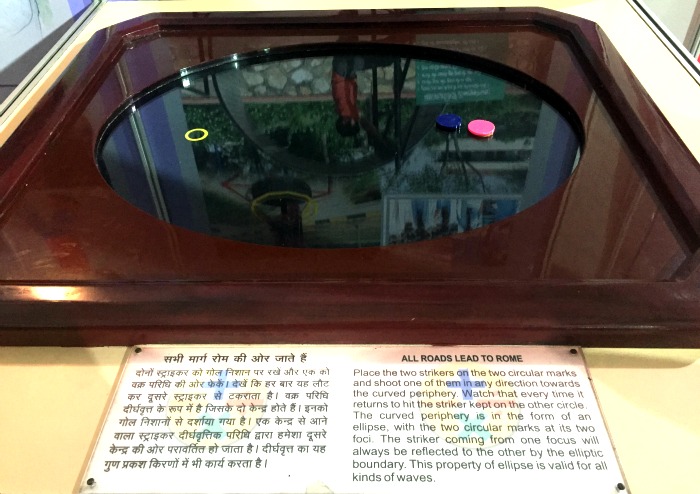 सभी मार्ग रोम की ओर जाते हैं
दोनों स्ट्राइकर को गोल निशान पर रखें और एक को
वक्र परिधि की ओर फेकें। देखें कि हर बार यह लौट
कर दूसरे स्ट्राइकर से टकराता है। वक्र परिधि
दीर्घवृत्त के रूप में है जिसके दो केन्द्र होते हैं। इनको
गोल निशानों से दर्शाया गया है। एक केन्द्र से आने
वाला स्ट्राइकर दीर्घवृत्तिक परिधि द्वारा हमेशा दूसरे
केन्द्र की ओर परावर्तित हो जाता है। दीर्घवृत्त का यह
गुण प्रकश किरणों में भी कार्य करता है।
ALL ROADS LEAD TO ROME
Place the two strikers on the two circular marks
and shoot one of them in any direction towards
the curved periphery. Watch that every time it
returns to hit the striker kept on the other circle.
The curved periphery is in the form of an
ellipse, with the two circular marks at its two
foci. The striker coming from one focus will
always be reflected to the other by the elliptic
boundary. This property of ellipse is valid for all
kinds of waves.